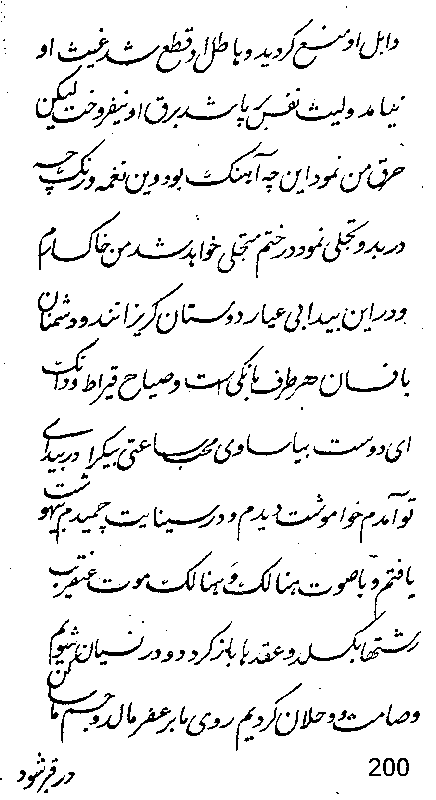 دابل او منع کردید و با طلل قطع شد غیث او
نیامد ولیث نفس پاشد برق او نیفروخت لیکن
حرق من نمود این چه آهنک بود وین نغمه و رنک چه
دربد و تجلی نمود در ختم متجلی خواهد شد من خاکسارم
و در این بیدا بی عیار دوستان کریزانند و دشمنان
با فسان هر طرف بانکی است و صیاح قیراط و دانک
ای دوست بیا ساعتی بیکرا در بیدای
تو آمدم خواموشت دیدم و در سینایت چمیدم بیهوشت
یافتم و با صوت هنالک و هنالک موت عنقریب
رشتها بکسلد و عقدها باز کردد و در نسیان شویم
و صامت و حلان کردیم روی ما بر عفر مالد و جسم ما ساکن
در قبر شود
200